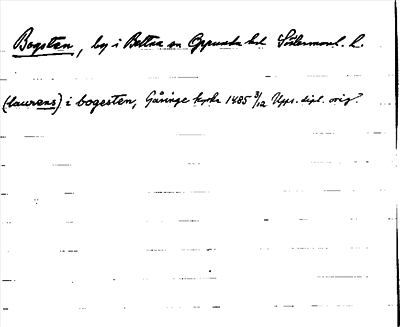 Bogsten, by i Bettna sn Oppunda hd Södermanl. l.
(laurens) i bogesten, Gåsinge kyrka 1485 3/12 Upps. dipl. orig.